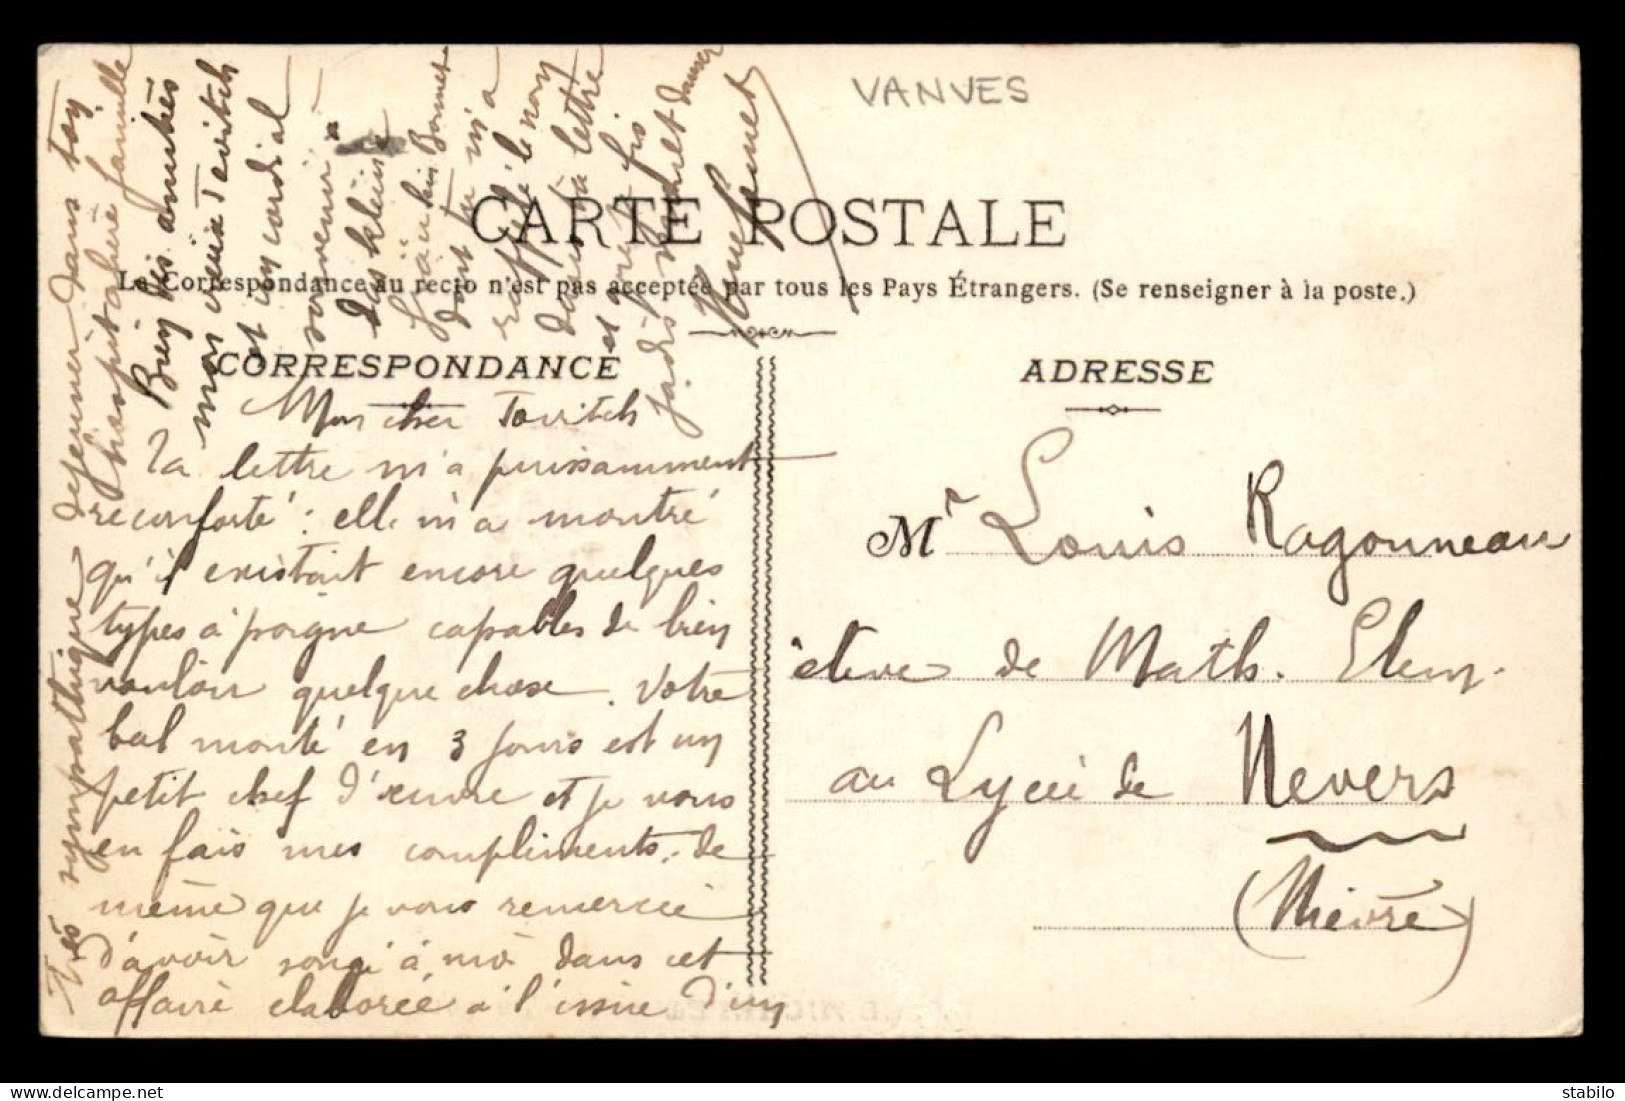 VANVES
CARTE POSTALE
La Correspondance au recto n'est pas acceptée par tous les Pays Étrangers. (Se renseigner à la poste.)
CORRESPONDANCE
Mon cher Tovritch
Ta lettre m'a puissamment
réconforté : elle m'a montré
qu'il existait encore quelques
types à poigne capables de bien
vouloir quelque chose. Votre
bal monté en 3 jours est un
petit chef d'œuvre et je vous
en fais mes compliments, de
même que je vous remercie
d'avoir songé à moi dans cet
affaire élaborée à l'issue d'un
très sympathique dejeuner dans toy
hospitalière famille
Bien des amitiés
mon vieux Tovritch
et un cordial
souvenir à
das kleine
Fräulein Bonnet
dont tu m'a
rappelé le nom
dans ta lettre
et qui fis
jadis
ADRESSE
Mr Louis Ragonneau
élève de Math. Elem.
au Lycée de Nevers
(Nièvre)